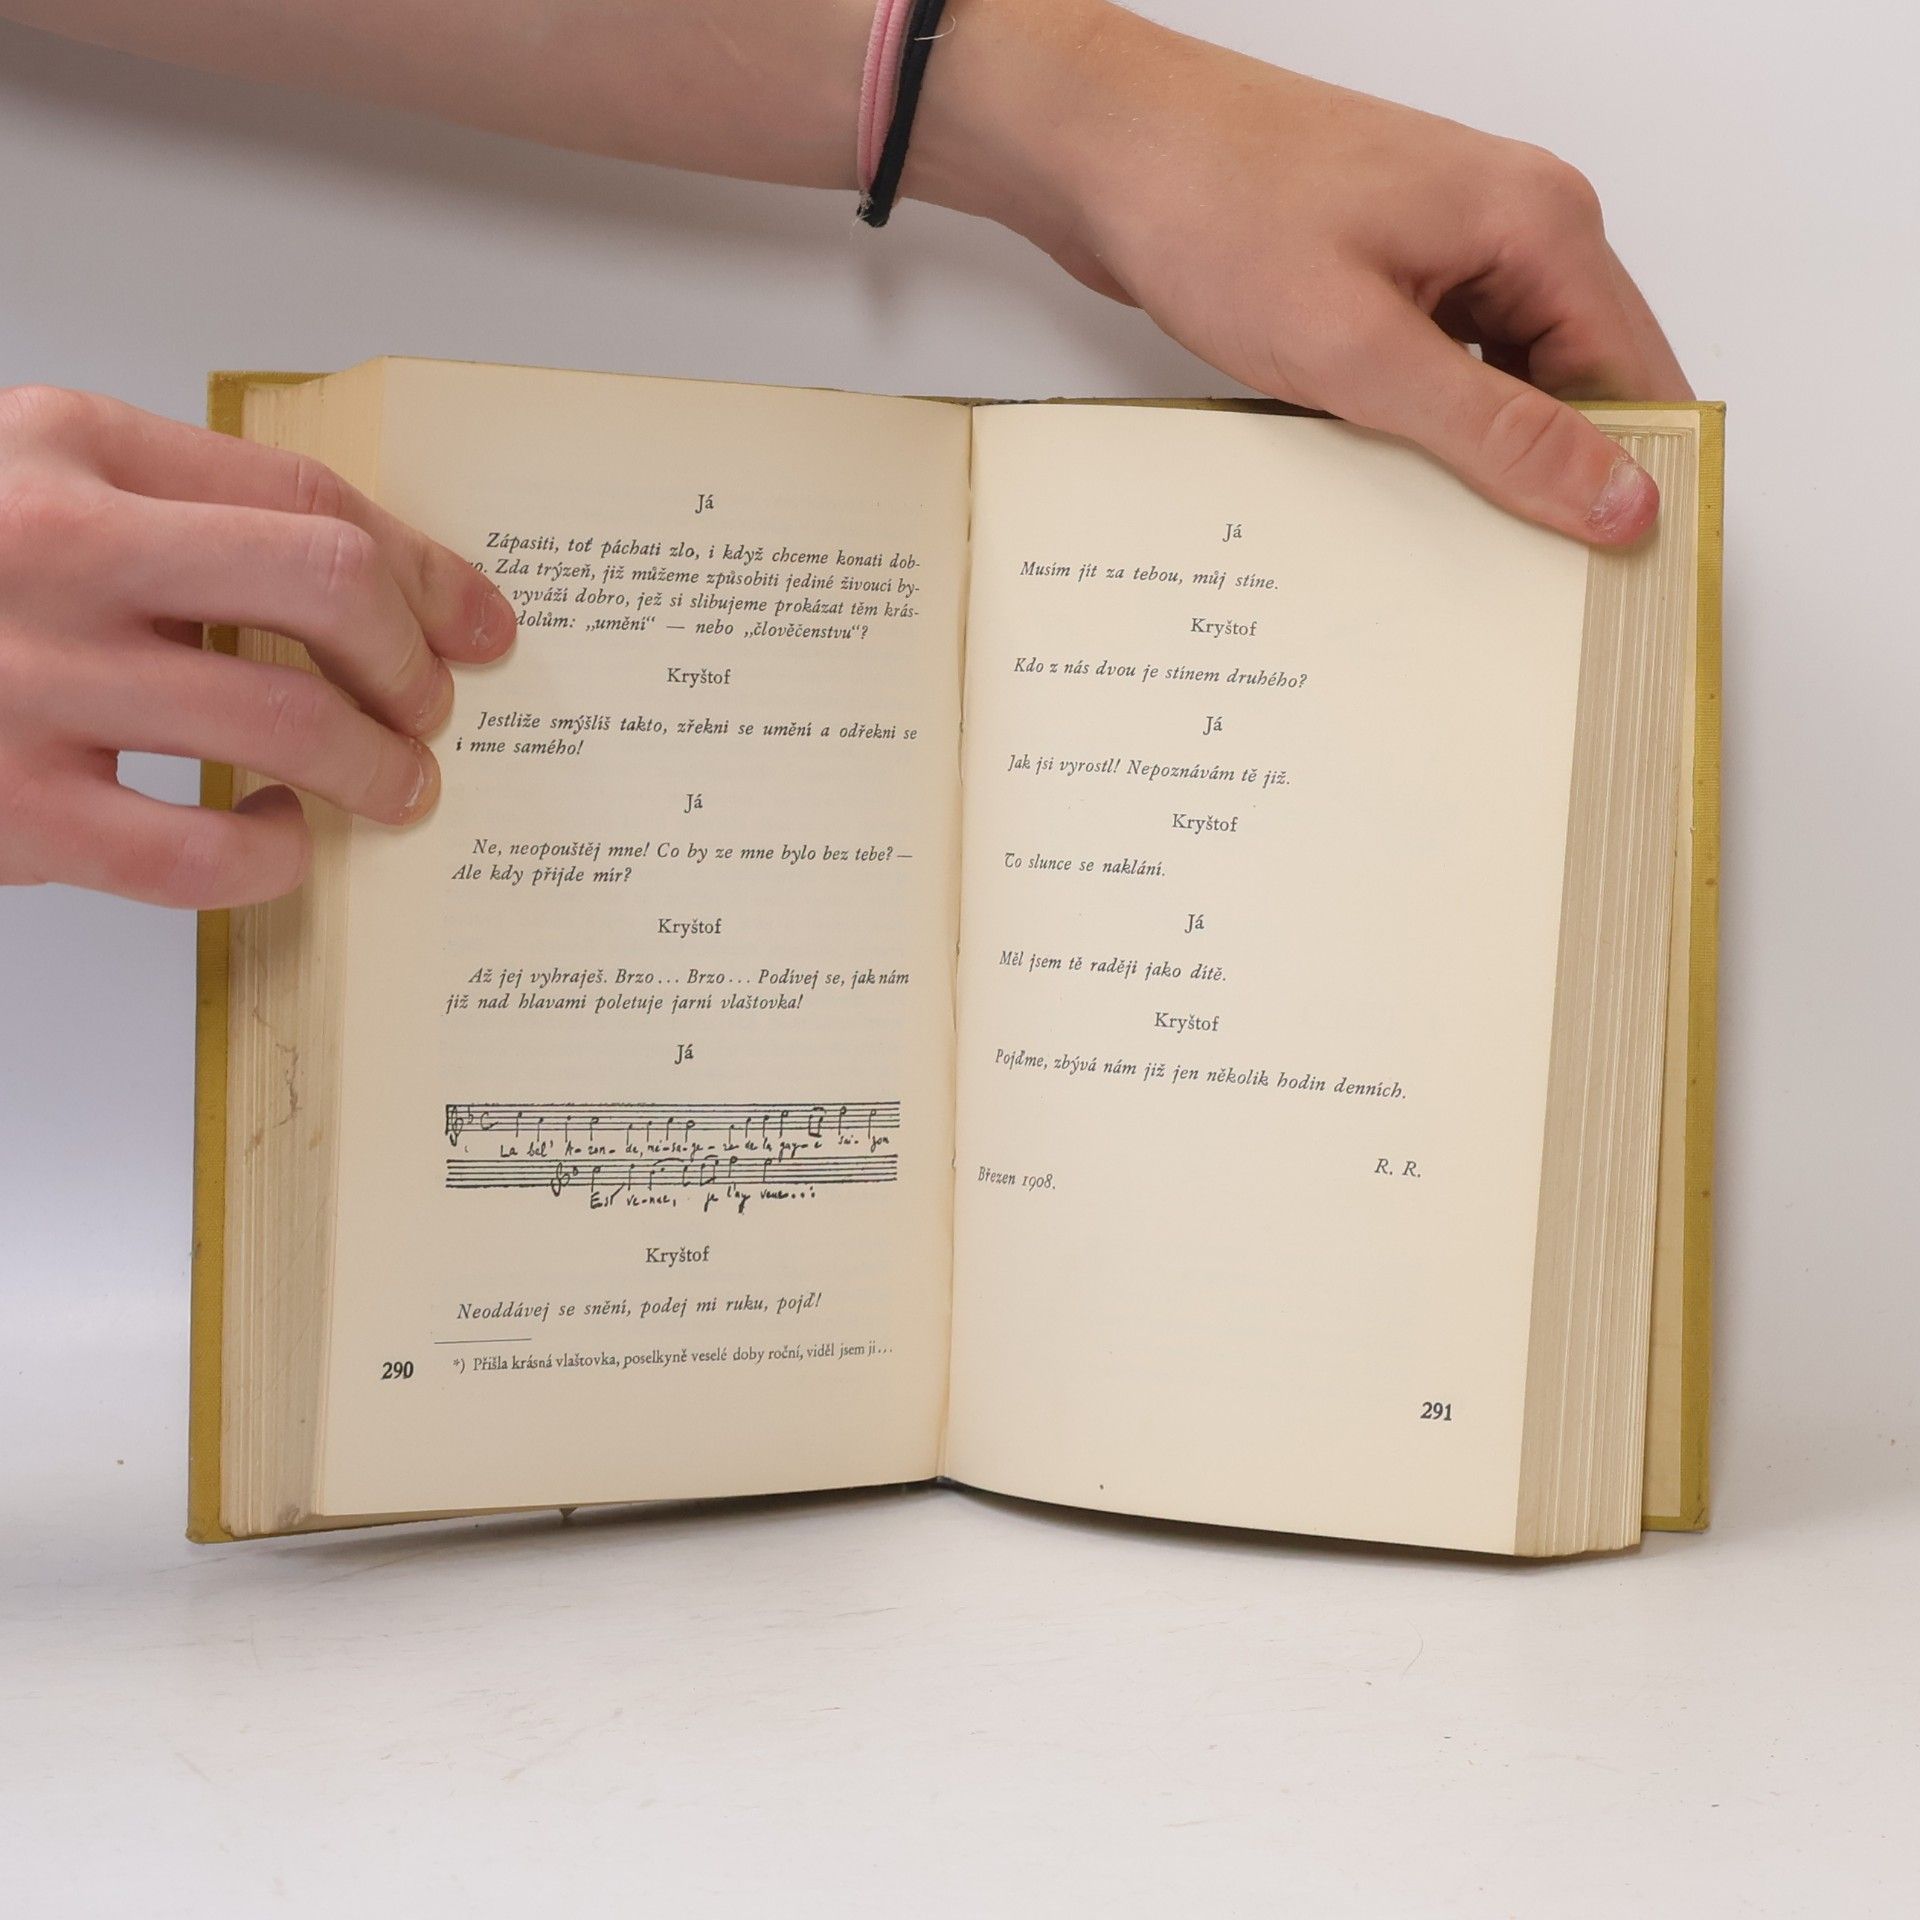 Já
Zápasiti, toť páchati zlo, i když chceme konati dob-
Zda trýzeň, již můžeme způsobiti jediné živoucí by-
vyváží dobro, jež si slibujeme prokázat těm krás-
dolům: „umění“ — nebo „člověčenstvu“?
Kryštof
Jestliže smýšlíš takto, zřekni se umění a odřekni se
i mne samého!
Já
Ne, neopouštěj mne! Co by ze mne bylo bez tebe? —
Ale kdy přijde mír?
Kryštof
Až jej vyhraješ. Brzo... Brzo... Podívej se, jak nám
již nad hlavami poletuje jarní vlaštovka!
Já
La bel' A-ron-de, mé-sa-ge-re de la gay-e sai-son
Est ve-nue, je l'ay veue...
Kryštof
Neoddávej se snění, podej mi ruku, pojď!
*) Přišla krásná vlaštovka, poselkyně veselé doby roční, viděl jsem ji...
290
Já
Musím jít za tebou, můj stíne.
Kryštof
Kdo z nás dvou je stínem druhého?
Já
Jak jsi vyrostl! Nepoznávám tě již.
Kryštof
To slunce se naklání.
Já
Měl jsem tě raději jako dítě.
Kryštof
Pojďme, zbývá nám již jen několik hodin denních.
R. R.
Březen 1908.
291